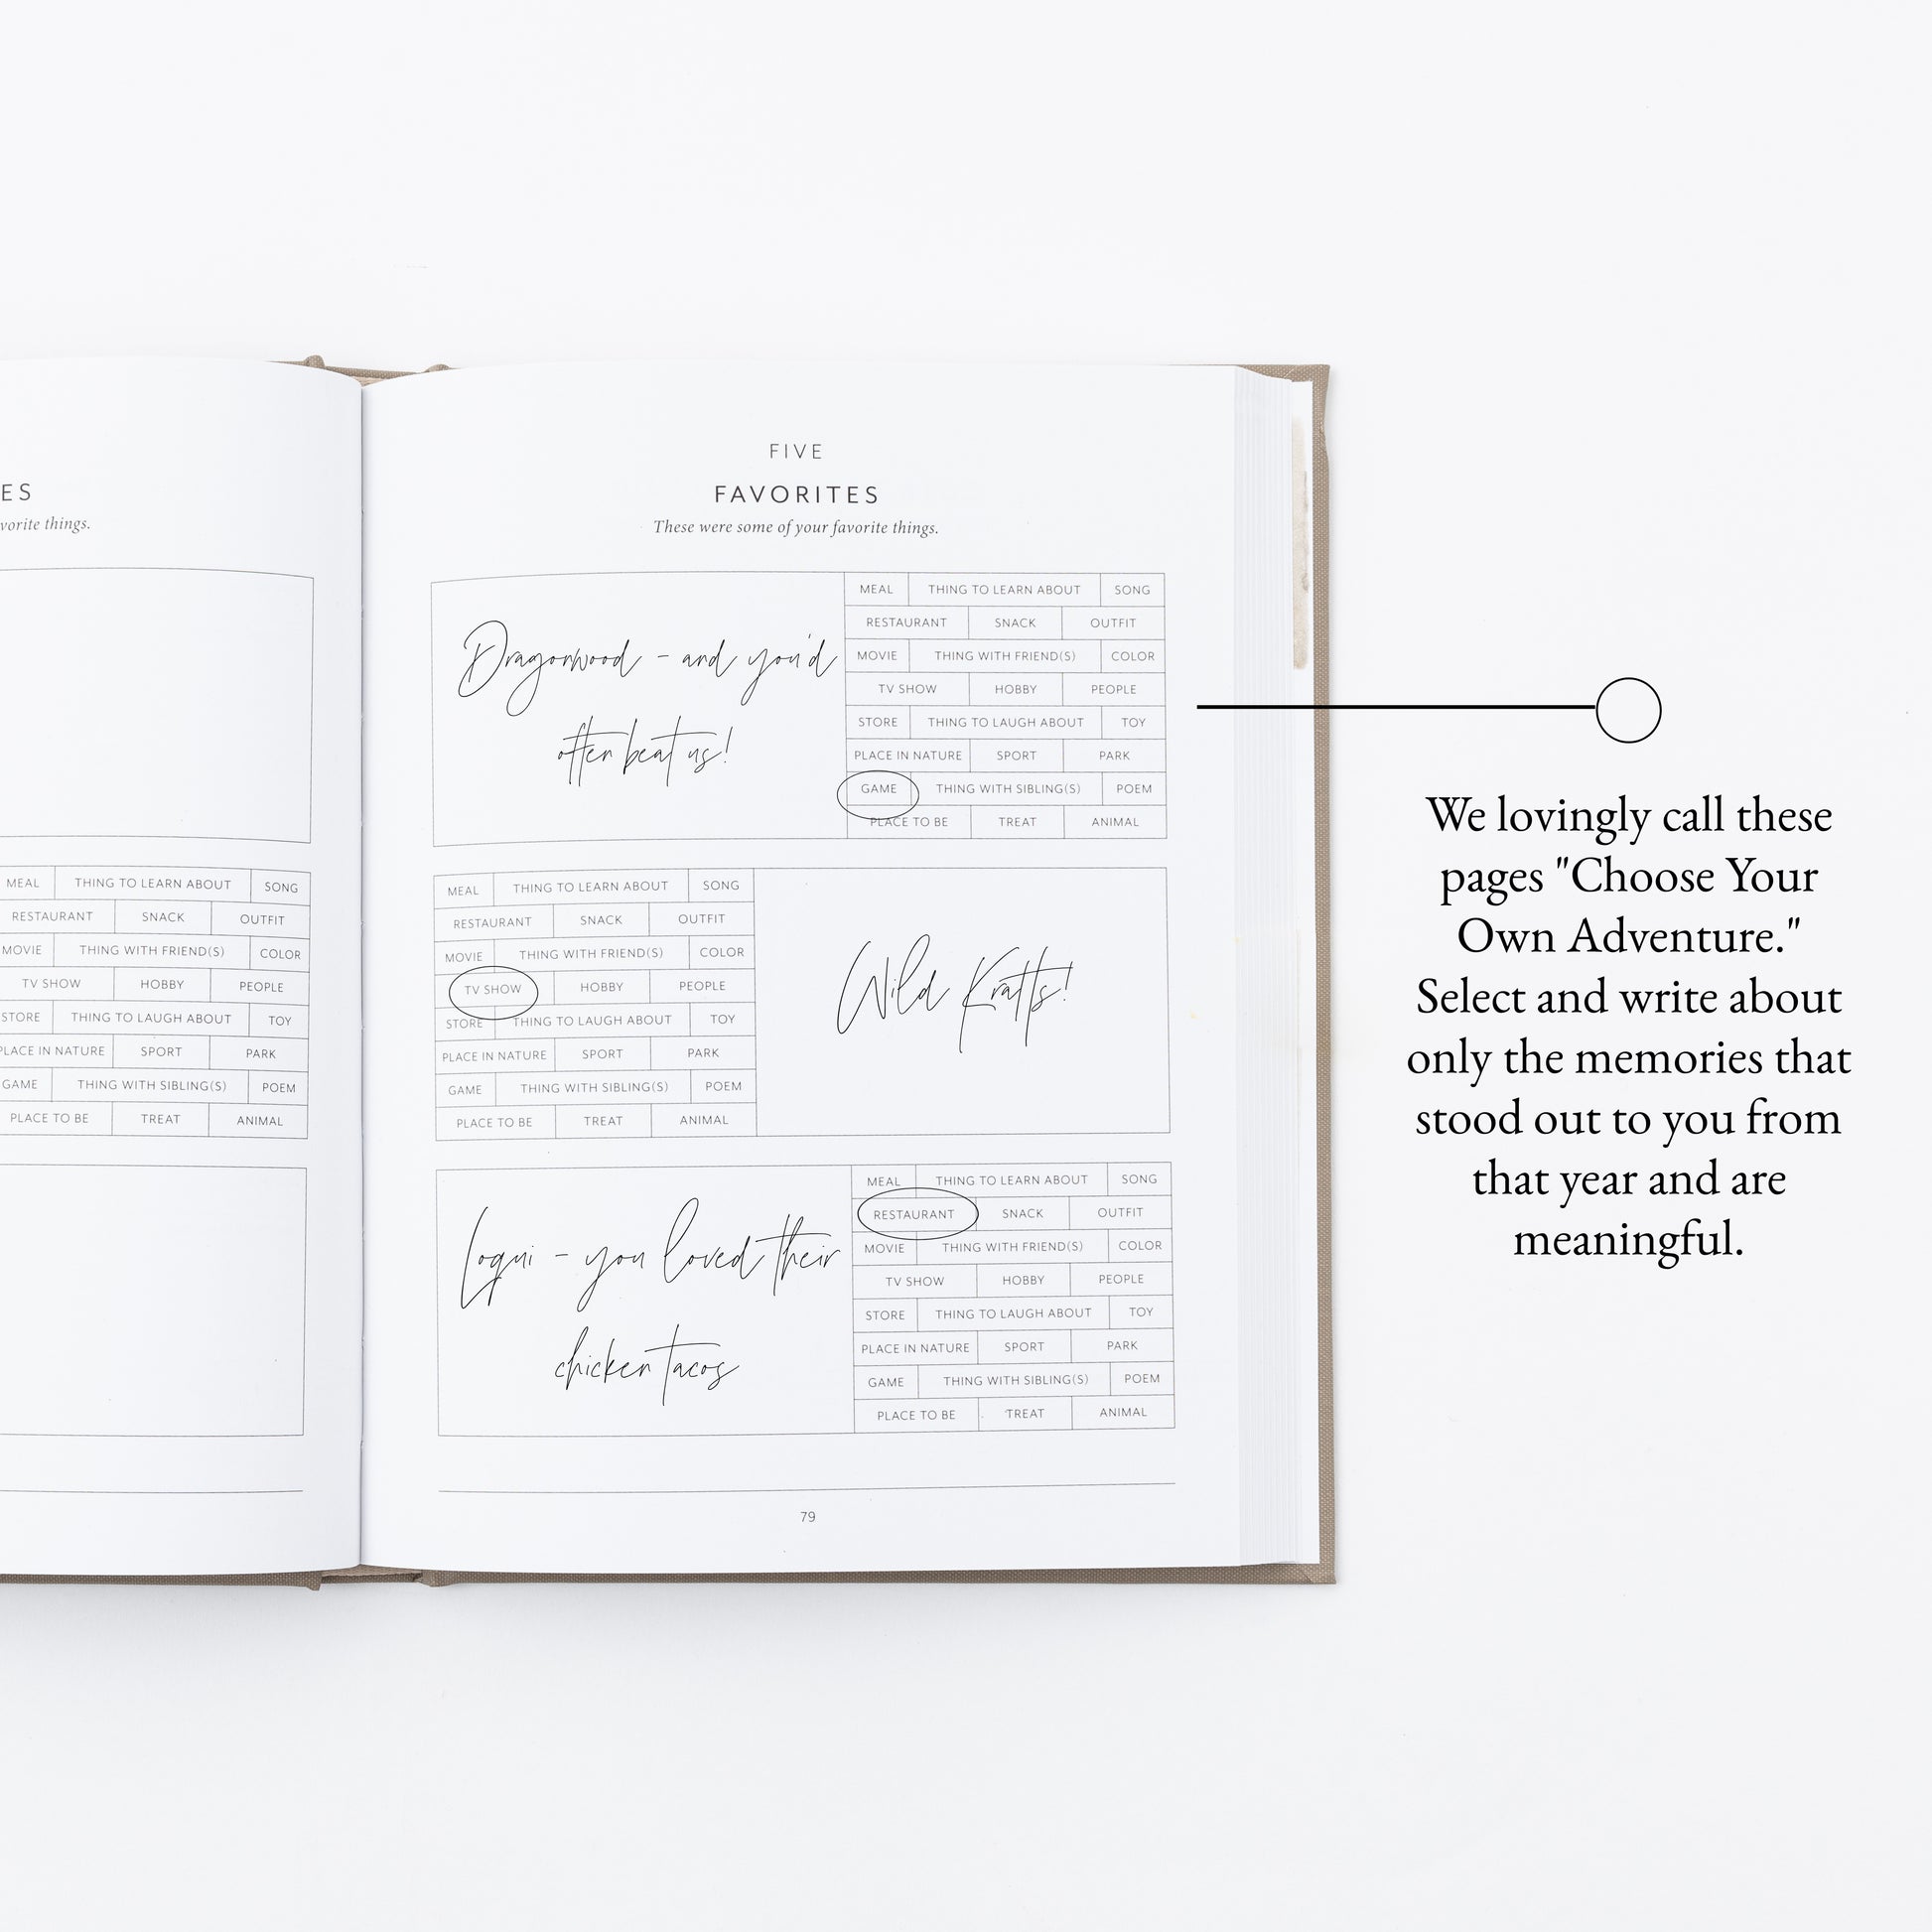 ES
vorite things.
MEAL THING TO LEARN ABOUT SONG
RESTAURANT SNACK OUTFIT
MOVIE THING WITH FRIEND(S) COLOR
TV SHOW HOBBY PEOPLE
STORE THING TO LAUGH ABOUT TOY
PLACE IN NATURE SPORT PARK
GAME THING WITH SIBLING(S) POEM
PLACE TO BE TREAT ANIMAL
FIVE
FAVORITES
These were some of your favorite things.
Dragonwood - and you'd
often beat us!
MEAL THING TO LEARN ABOUT SONG
RESTAURANT SNACK OUTFIT
MOVIE THING WITH FRIEND(S) COLOR
TV SHOW HOBBY PEOPLE
STORE THING TO LAUGH ABOUT TOY
PLACE IN NATURE SPORT PARK
GAME THING WITH SIBLING(S) POEM
PLACE TO BE TREAT ANIMAL
MEAL THING TO LEARN ABOUT SONG
RESTAURANT SNACK OUTFIT
MOVIE THING WITH FRIEND(S) COLOR
TV SHOW HOBBY PEOPLE
STORE THING TO LAUGH ABOUT TOY
PLACE IN NATURE SPORT PARK
GAME THING WITH SIBLING(S) POEM
PLACE TO BE TREAT ANIMAL
Wild Kratts!
Loqui - you loved their
chicken tacos
MEAL THING TO LEARN ABOUT SONG
RESTAURANT SNACK OUTFIT
MOVIE THING WITH FRIEND(S) COLOR
TV SHOW HOBBY PEOPLE
STORE THING TO LAUGH ABOUT TOY
PLACE IN NATURE SPORT PARK
GAME THING WITH SIBLING(S) POEM
PLACE TO BE TREAT ANIMAL
79
We lovingly call these
pages "Choose Your
Own Adventure."
Select and write about
only the memories that
stood out to you from
that year and are
meaningful.